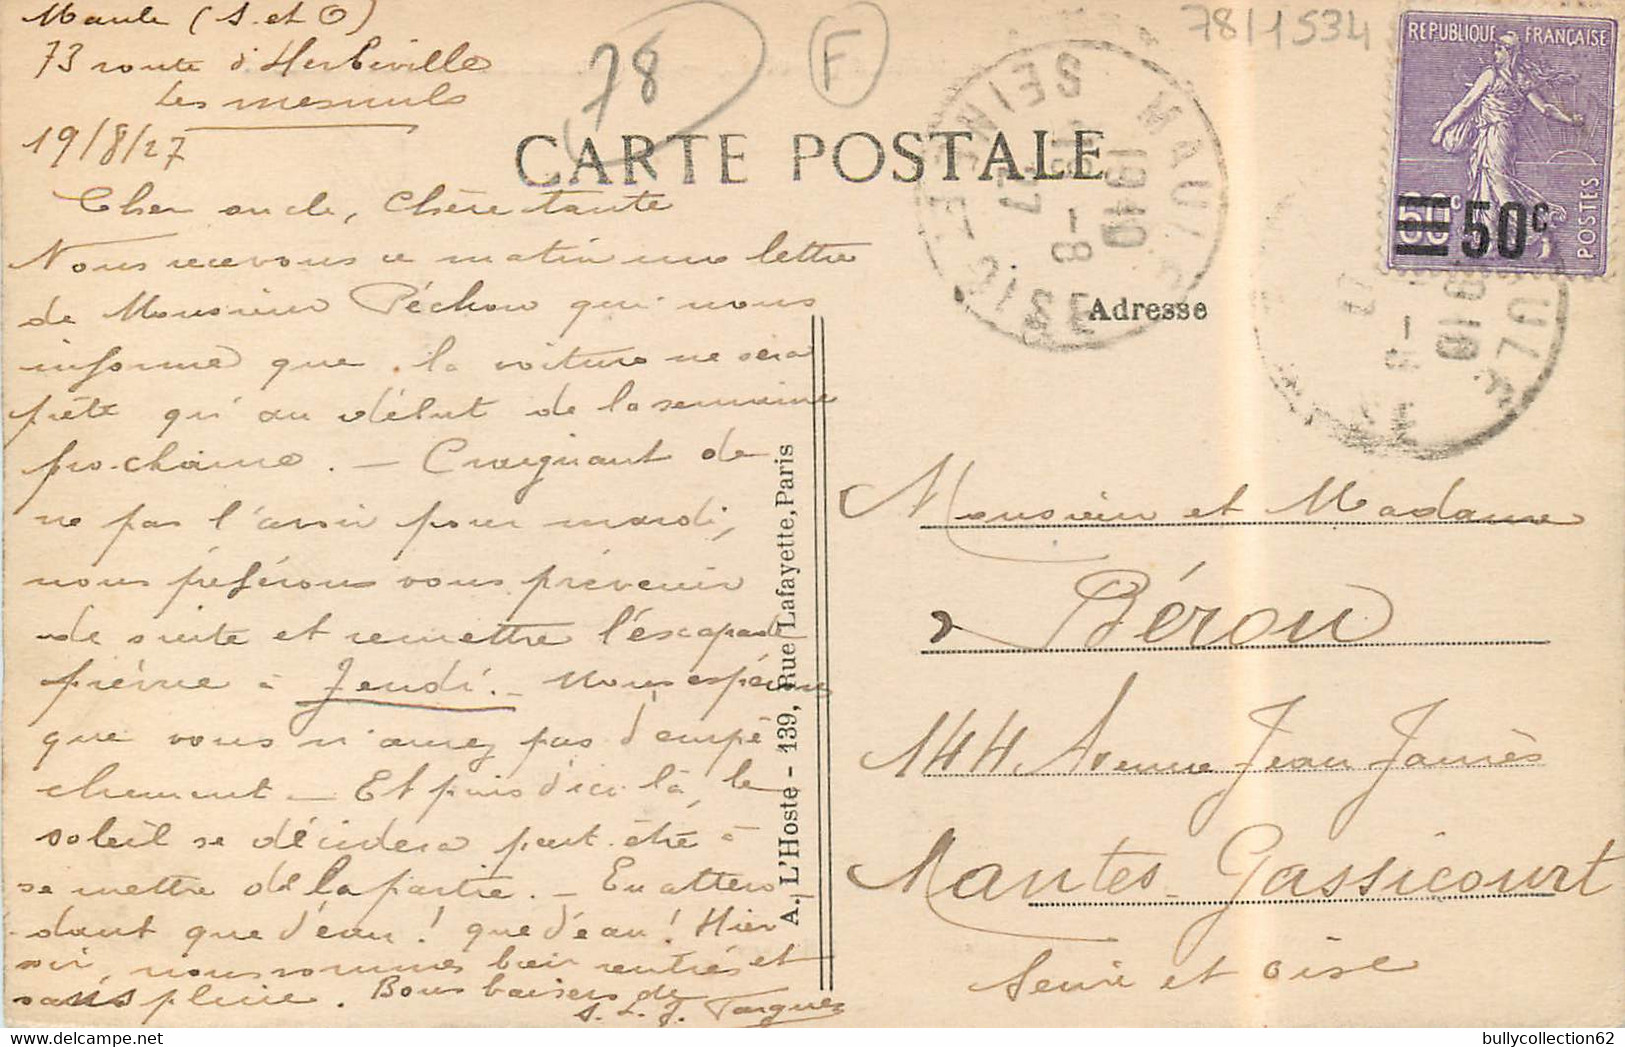 Maule (S. et O)
73 route d'Herbeville
Les mesnuls
19/8/27
78
F
78/1534
CARTE POSTALE
REPUBLIQUE FRANÇAISE
POSTES
60c
50c
MAULE
SEINE-ET-OISE
1910
19-8
27
Cher oncle, Chère tante
Nous recevons ce matin une lettre
de Monsieur Péchou qui nous
informe que la voiture ne sera
prête qu'au début de la semaine
prochaine. - Craignant de
ne pas l'avoir pour mardi,
nous préférons vous prévenir
de suite et remettre l'escapade
prévue à Jeudi. - Nous espérons
que vous n'aurez pas d'empê
chement - Et puis d'ici là, le
soleil se décidera peut-être à
se mettre de la partie. - En atten-
dant que d'eau! que d'eau! Hier
soir, nous sommes bien rentrés et
sans pluie. Bons baisers de
S. L. J.
A. L'Hoste - 139, Rue Lafayette, Paris
Adresse
Monsieur et Madame
Bérou
144 Avenue Jean Jaurès
Mantes-Gassicourt
Seine et Oise
bullycollection62